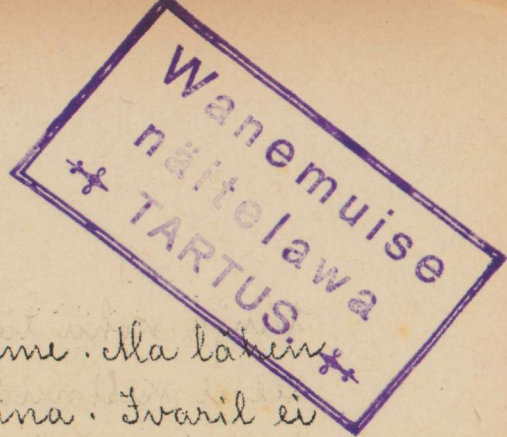 Wanemuise
näitelawa
TARTUS.
Ma lähen
Ivaril ei